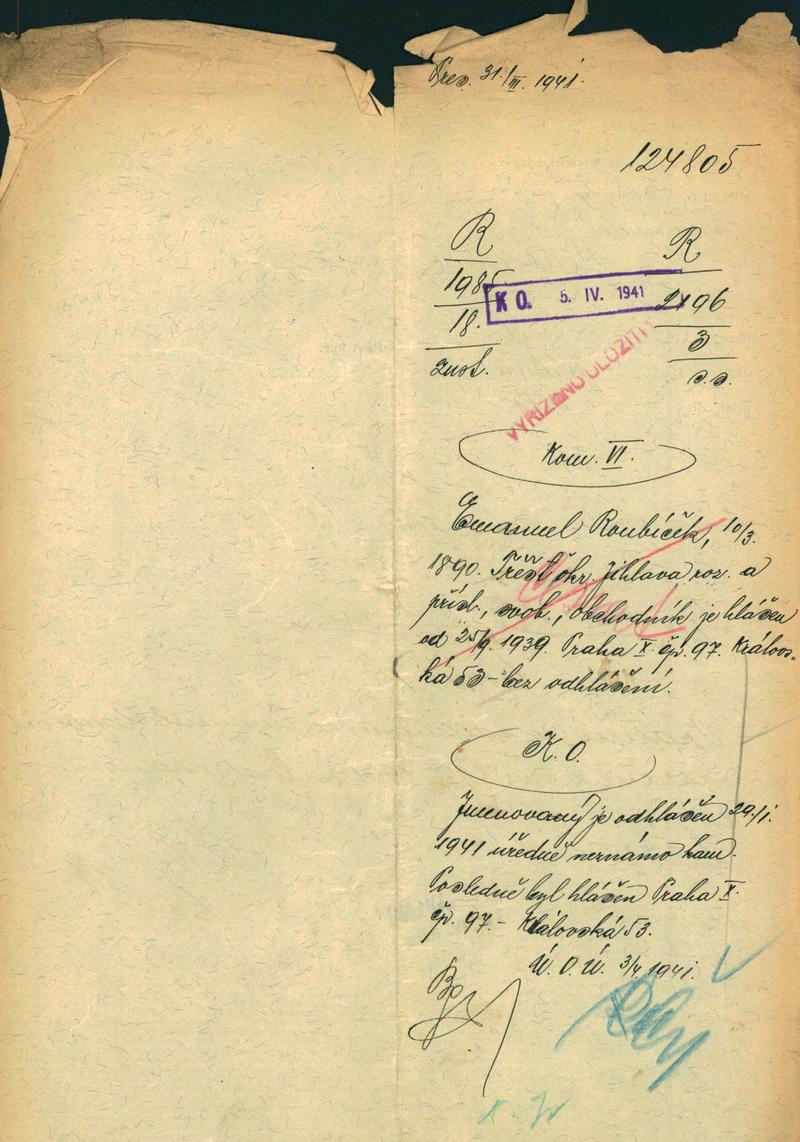 Pres. 31./III. 1941.
124805
R
1985
18.
zust.
R
2196
3
s.s.
K O. 5. IV. 1941
VYŘÍZENO ULOŽITI
Kom. VI.
Emanuel Roubíček, 10/3.
1890. Třešť okr. Jihlava roz. a
přísl., svob., obchodník je hlášen
od 25/9. 1939. Praha X. čp. 97. Králov-
ská 53 – bez odhlášení.
K. O.
Jmenovaný je odhlášen 29./1.
1941 úředně neznámo kam.
Posledně byl hlášen Praha X.
čp. 97. – Královská 53.
Ú. O. Ú. 3/4 1941.